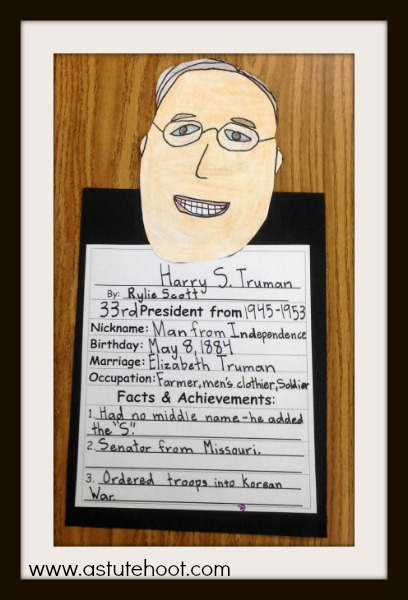 Harry S. Truman
By: Rylie Scott
33rd President from 1945-1953
Nickname: Man from Independence
Birthday: May 8, 1884
Marriage: Elizabeth Truman
Occupation: Farmer, men's clothier, Soldier
Facts & Achievements:
1. Had no middle name-he added
the "S".
2. Senator from Missouri.
3. Ordered troops into Korean
War.
www.astutehoot.com